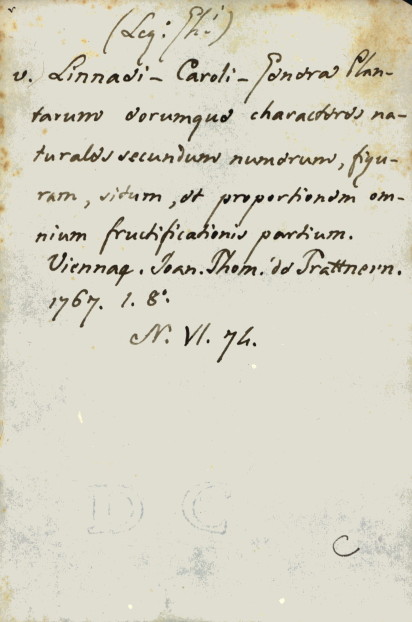 (Leg: Ehi.)
v. Linnaei - Caroli - Genera Plan-
tarum eorumque characteres na-
turales secundum numerum, figu-
ram, situm, et proportionem om-
nium fructificationis partium.
Viennae. Joan. Thom. de Trattnern.
1767. 1. 8º.
N. VI. 74.
D C
C